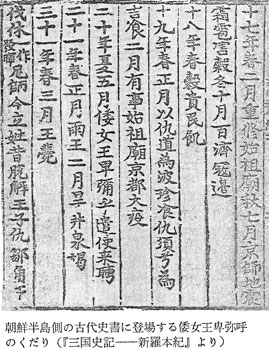 十七年春二月重修始祖廟秋七月京師地震
霜雹害穀冬十月百濟寇邊
十八年春穀貴民飢
十九年春正月以仇道為波珍飡仇須兮為
吉飡二月有事始祖廟京都大疫
二十年夏五月倭女王卑彌乎遣使來聘
二十一年春正月雨土二月旱井泉竭
三十一年春三月王薨
伐休一作發暉尼師今立姓昔脫解王子仇鄒角干
朝鮮半島側の古代史書に登場する倭女王卑弥呼
のくだり（『三国史記――新羅本紀』より）